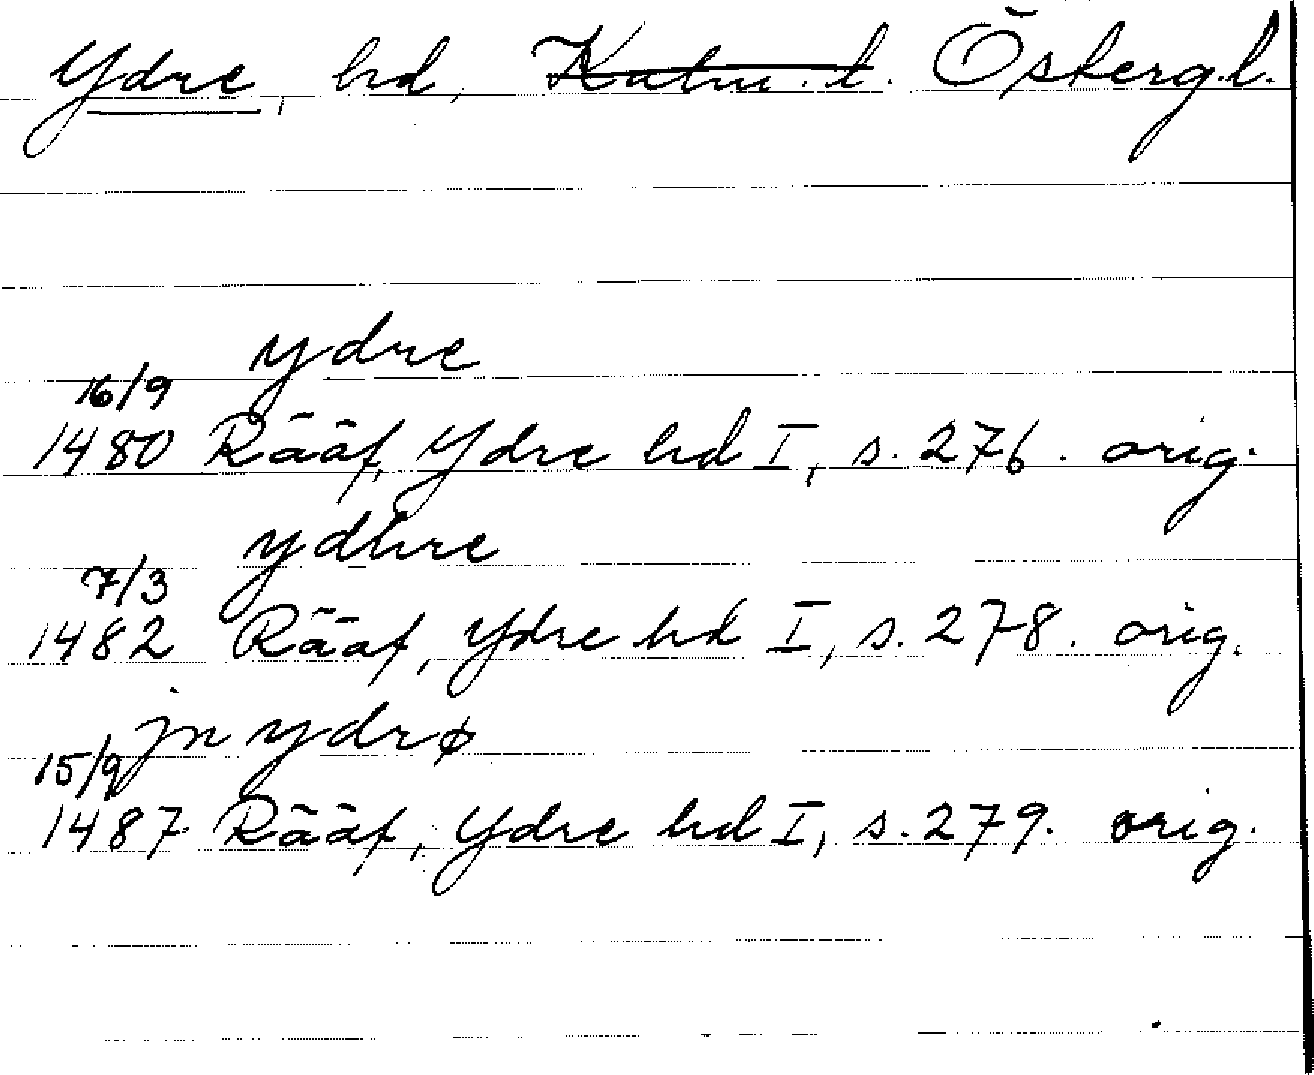 Ydre, hd, Kalm. l. Östergl.
ydre
16/9
1480 Rääf, Ydre hd I, s. 276. orig.
ydhre
7/3
1482 Rääf, Ydre hd I, s. 278. orig.
jn ydrø
15/9
1487 Rääf, Ydre hd I, s. 279. orig.